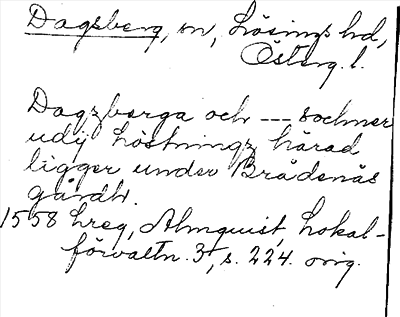 Dagsberg, sn, Lösings hd,
Österg. l.
Dagzberga och --- sochner
udij Löstningz härad
ligger under Brådenäs
gårdh.
1558 Lreg, Almquist, Lokal-
förvaltn. 3, s. 224. orig.